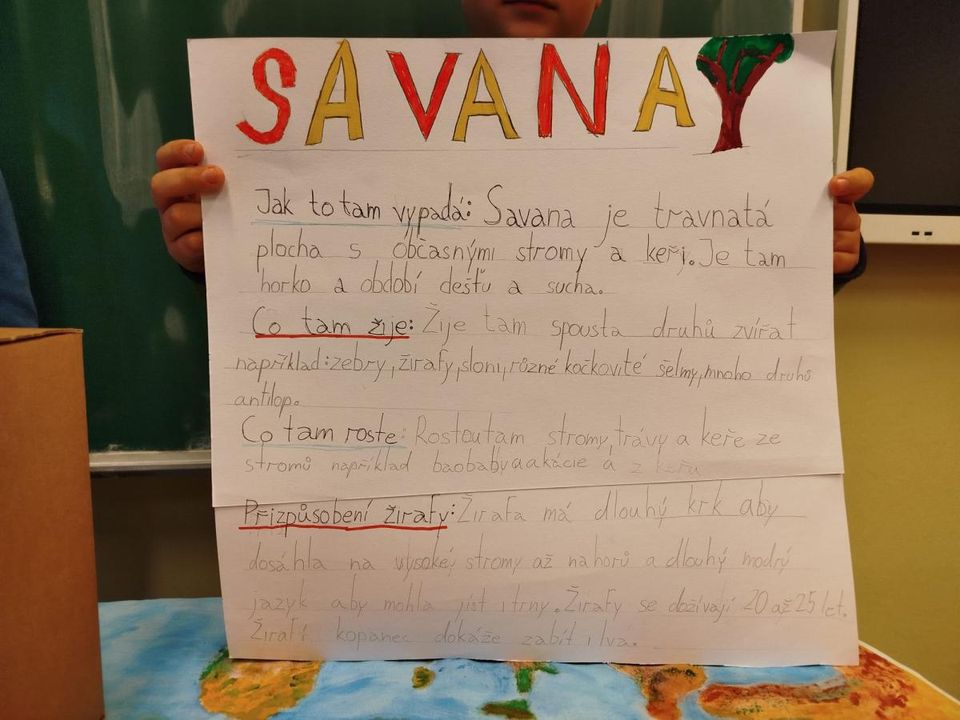 SAVANA
Jak to tam vypadá: Savana je travnatá
plocha s občasnými stromy a keři. Je tam
horko a období dešťu a sucha.
Co tam žije: Žije tam spousta druhů zvířat
například: zebry, žirafy, sloni, různé kočkovité šelmy, mnoho druhů
antilop.
Co tam roste: Rostou tam stromy, trávy a keře ze
stromů například baobaby a akácie a z keřu
Přizpůsobení žirafy: Žirafa má dlouhý krk aby
dosáhla na vysoké stromy až nahorů a dlouhý modrý
jazyk aby mohla jíst i trny. Žirafy se dožívají 20 až 25 let.
Žirafí kopanec dokáže zabít i lva.